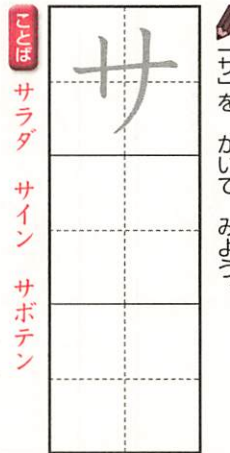 「サ」を かいて みよう
サ
ことば サラダ サイン サボテン